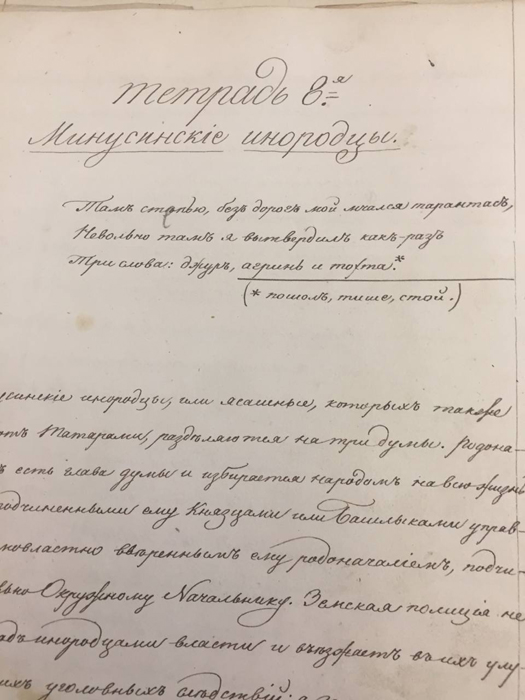 Тетрадь 8.я
Минусинскіе инородцы.
Тамъ степью, безъ дорогъ мой мчался тарантасъ,
Невольно тамъ я вытвердилъ какъ-разъ
Три слова: джуръ, агринь и тохта.*
(* пошолъ, тише, стой.)
усинскіе инородцы, или ясашные, которыхъ также
ютъ Татарами, раздѣляются на три думы. Родона-
ъ есть глава думы и избирается народомъ на всю жизнь
одчиненными ему Князцами или Башлыками управ-
новластно ввѣреннымъ ему родоначаліемъ, подчи-
ьно Окружному Начальнику. Земская полиція не
адъ инородцами власти и въѣзжаетъ въ ихъ улу-
ихъ уголовныхъ слѣдствій;